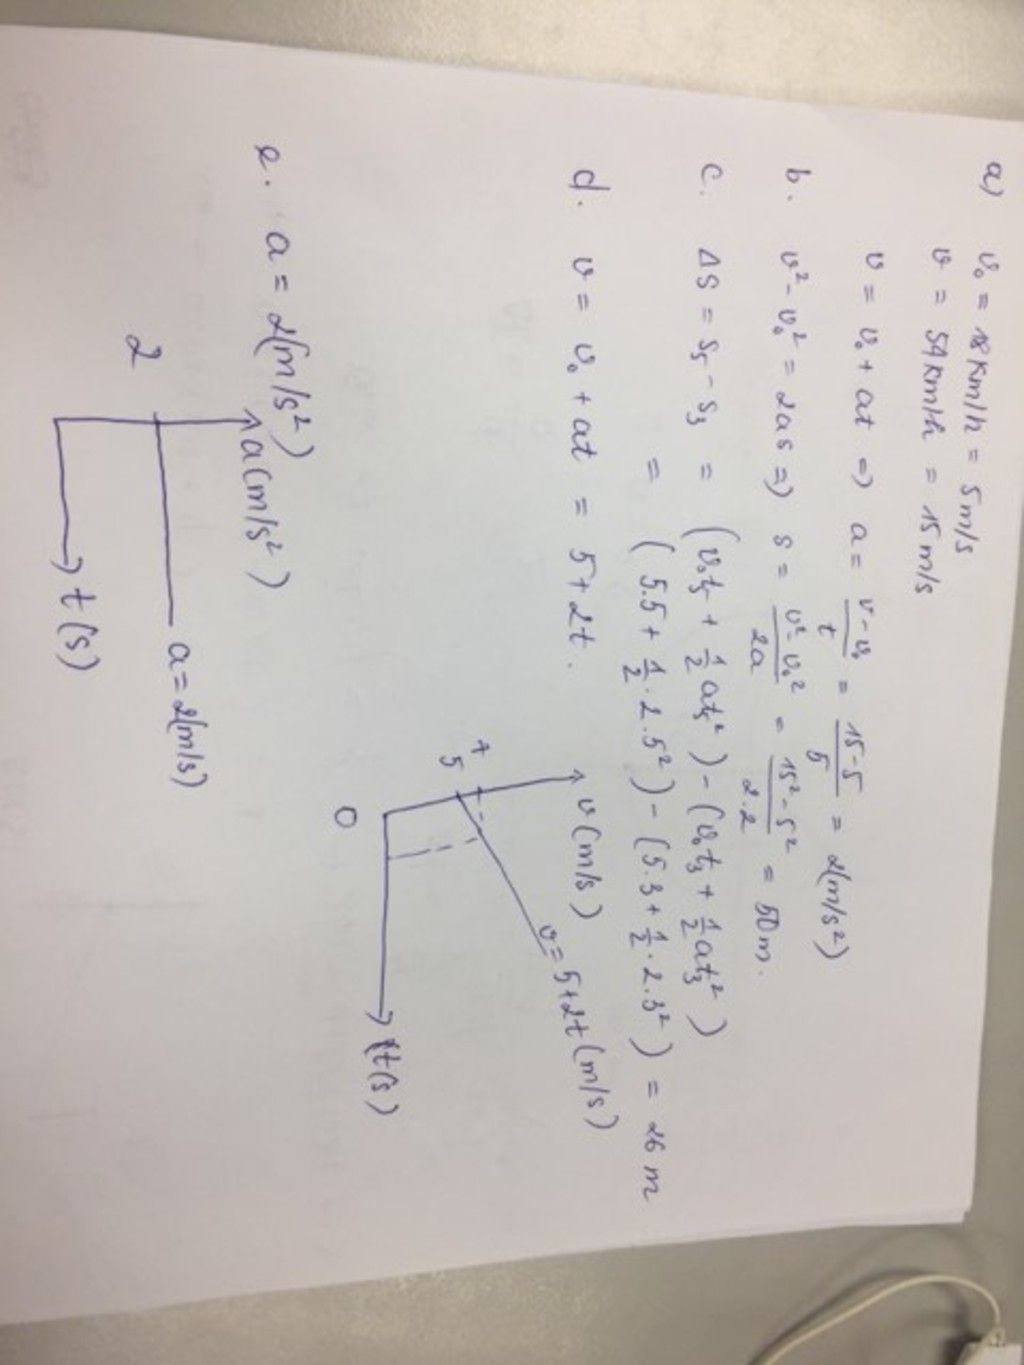 a) v₀ = 18 km/h = 5 m/s
v = 54 km/h = 15 m/s
v = v₀ + at ⇒ a = (v - v₀)/t = (15-5)/5 = 2 (m/s²)
b. v² - v₀² = 2as ⇒ s = (v² - v₀²)/2a = (15² - 5²)/2.2 = 50 m.
c. ΔS = S₅ - S₃ = (v₀t₅ + 1/2 at₅²) - (v₀t₃ + 1/2 at₃²)
= (5.5 + 1/2 . 2.5²) - (5.3 + 1/2 . 2.3²) = 26 m
d. v = v₀ + at = 5 + 2t.
v (m/s)
v = 5 + 2t (m/s)
5
O
t(s)
e. a = 2 (m/s²)
a (m/s²)
2
a = 2 (m/s)
t (s)